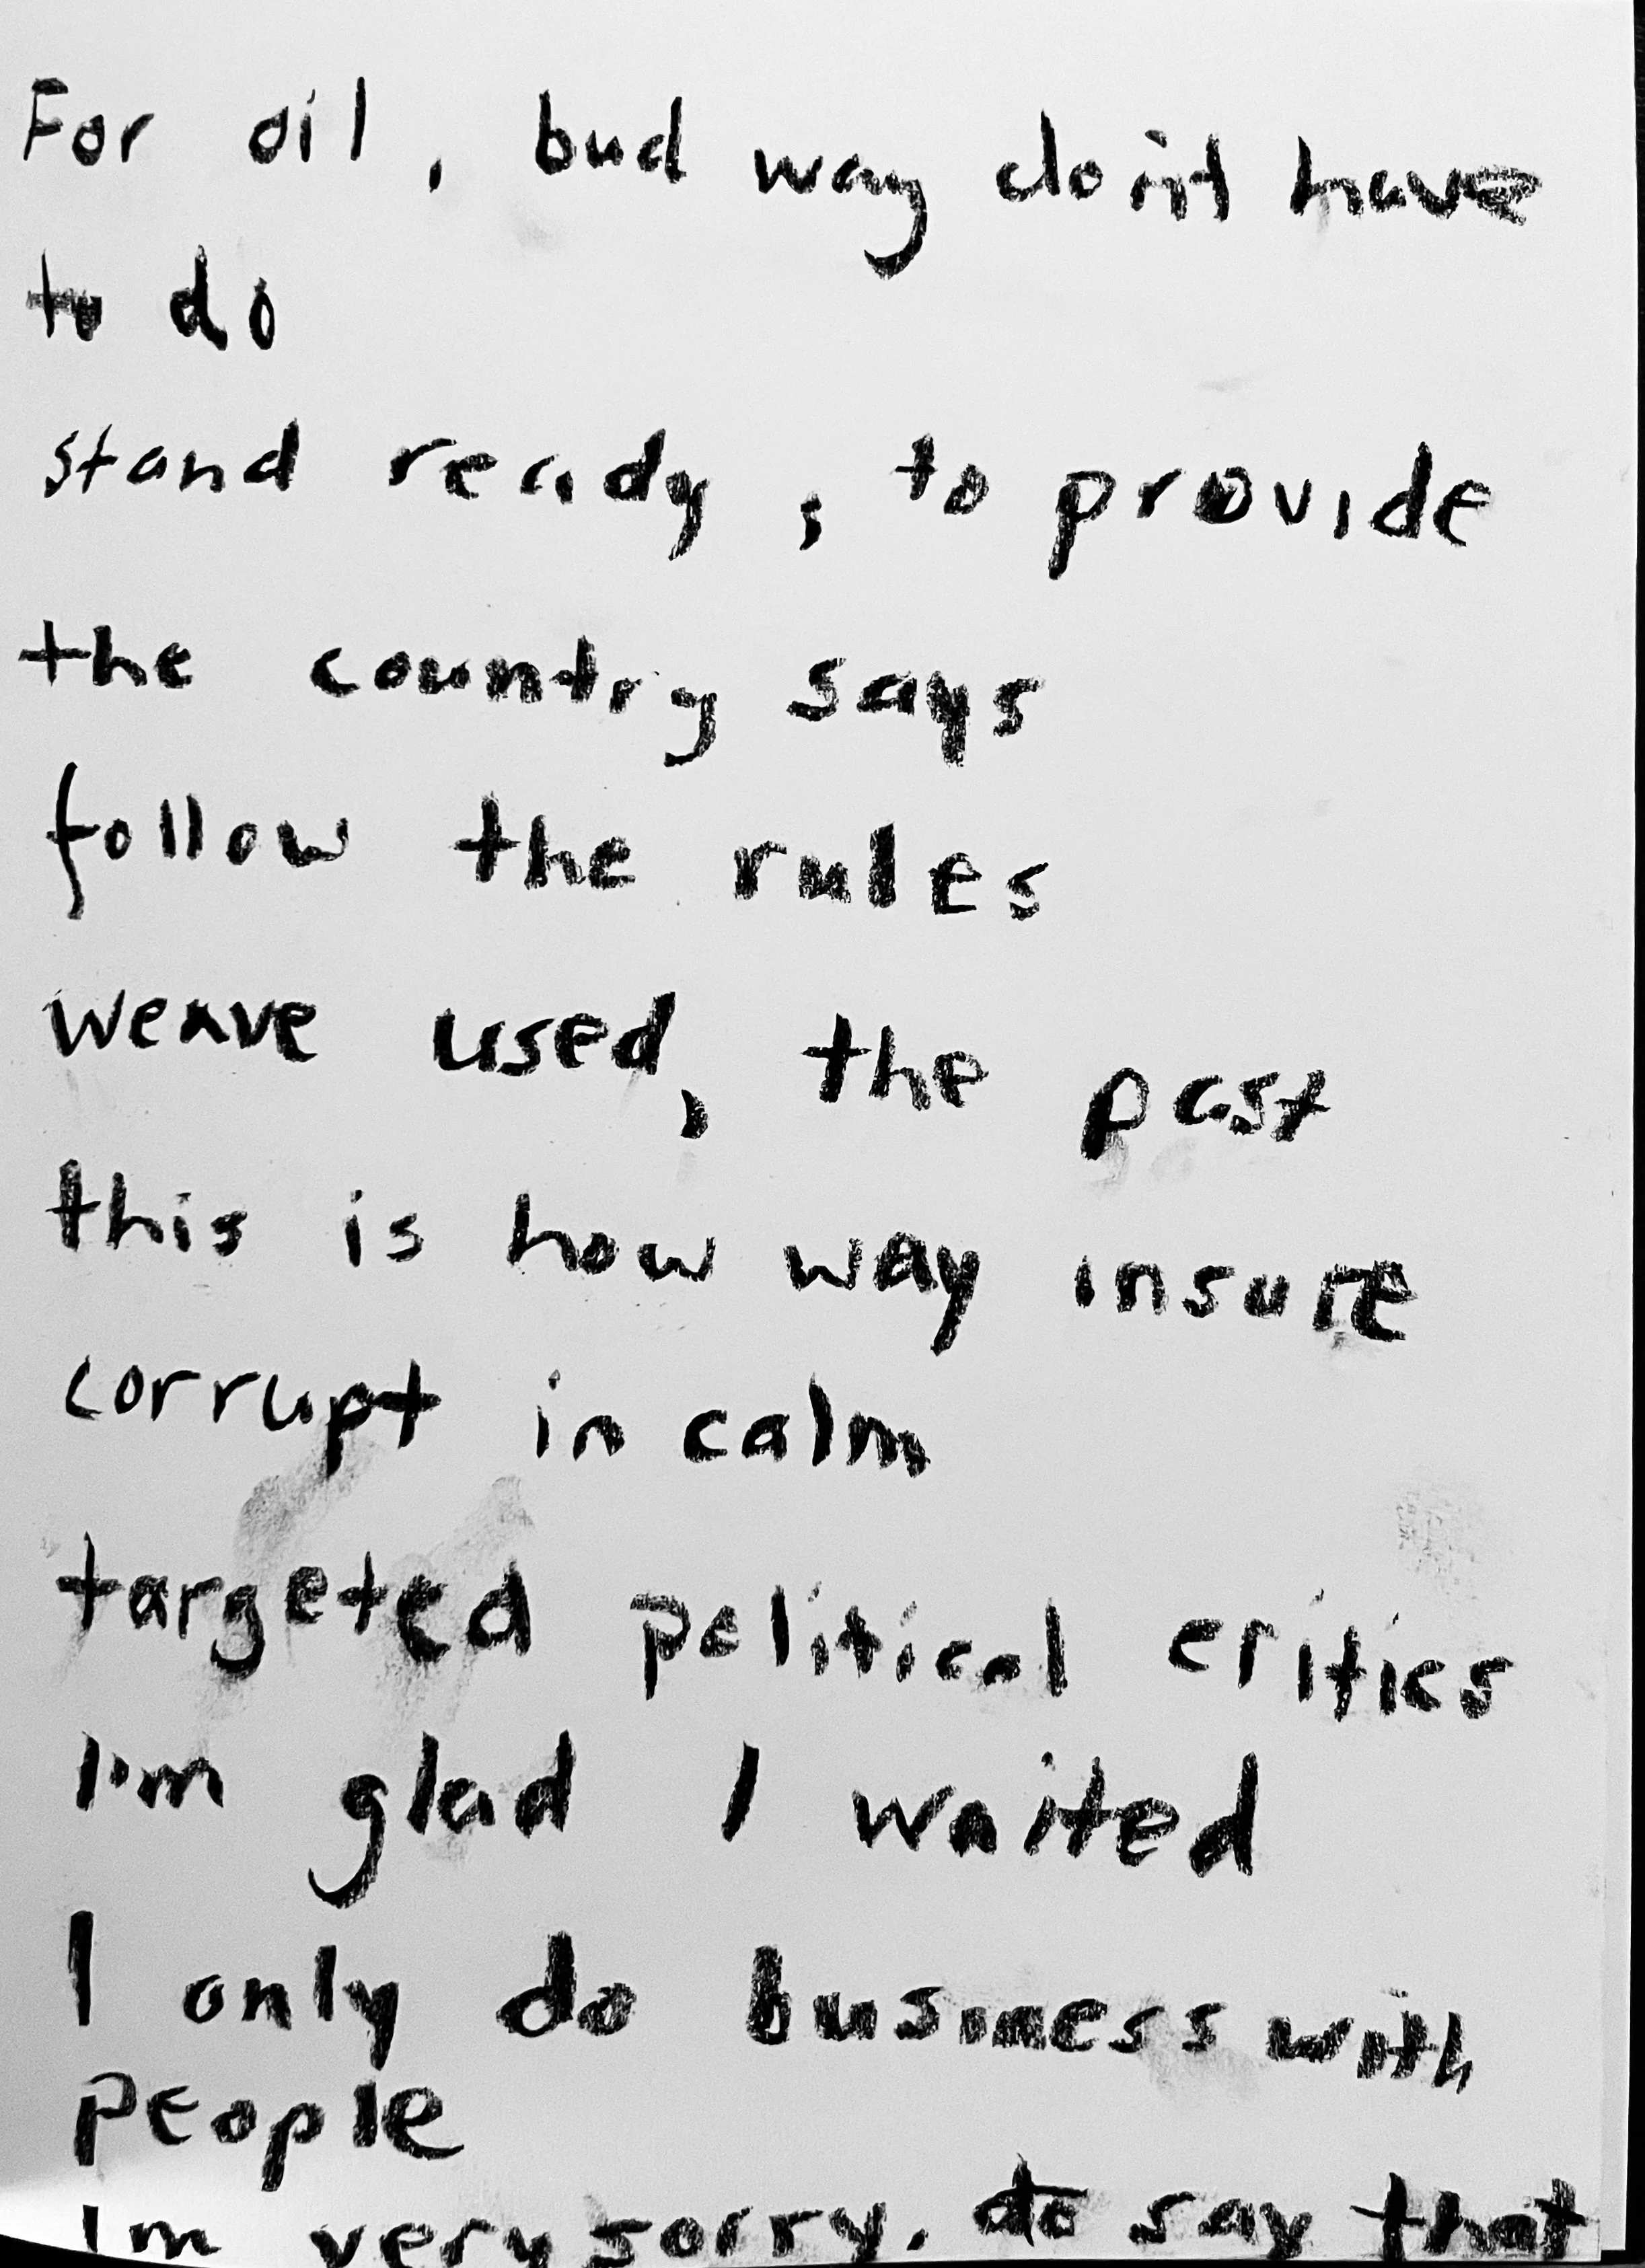 For oil, bud way doint have
to do
stand ready, to provide
the country says
follow the rules
weave used, the past
this is how way insure
corrupt in calm
targeted political critics
I'm glad I waited
I only do business with
people
Im very sorry. to say that